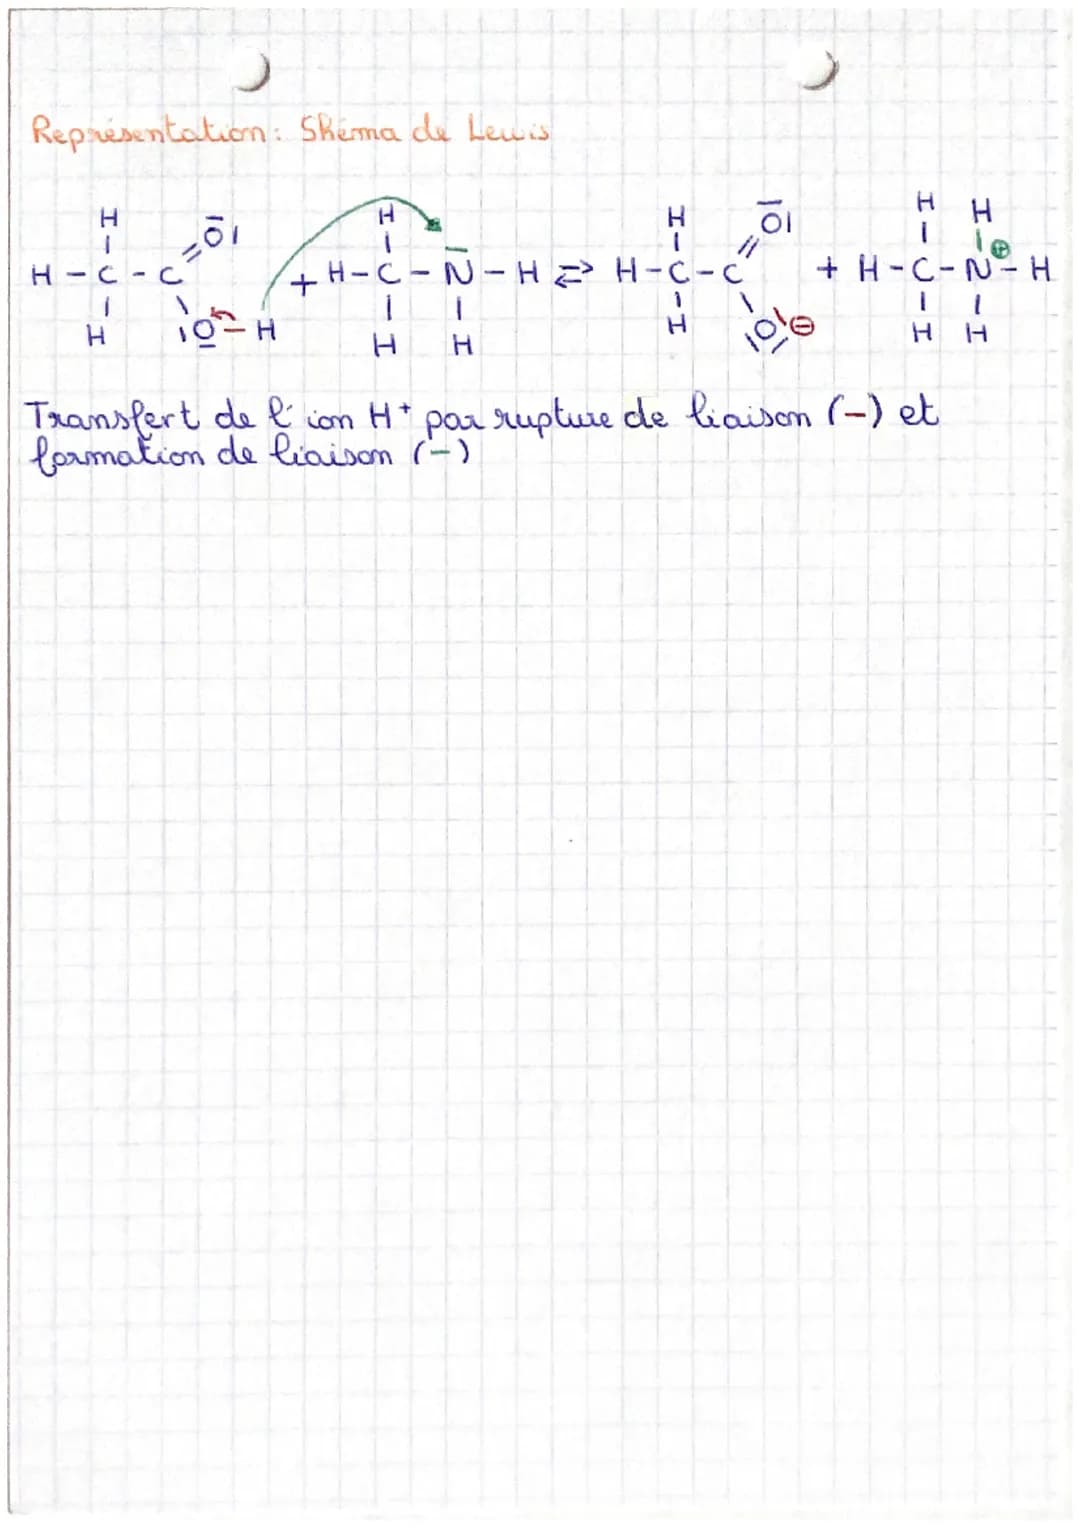 Représentation: Shéma de Lewis
H H H H H
H - C - C = O + H - C - N - H ⇄ H - C - C = O + H - C - N ⊕ - H
H O - H H H H O ⊖ H H
Transfert de l'ion H⁺ par rupture de liaison (-) et
formation de liaison (-)